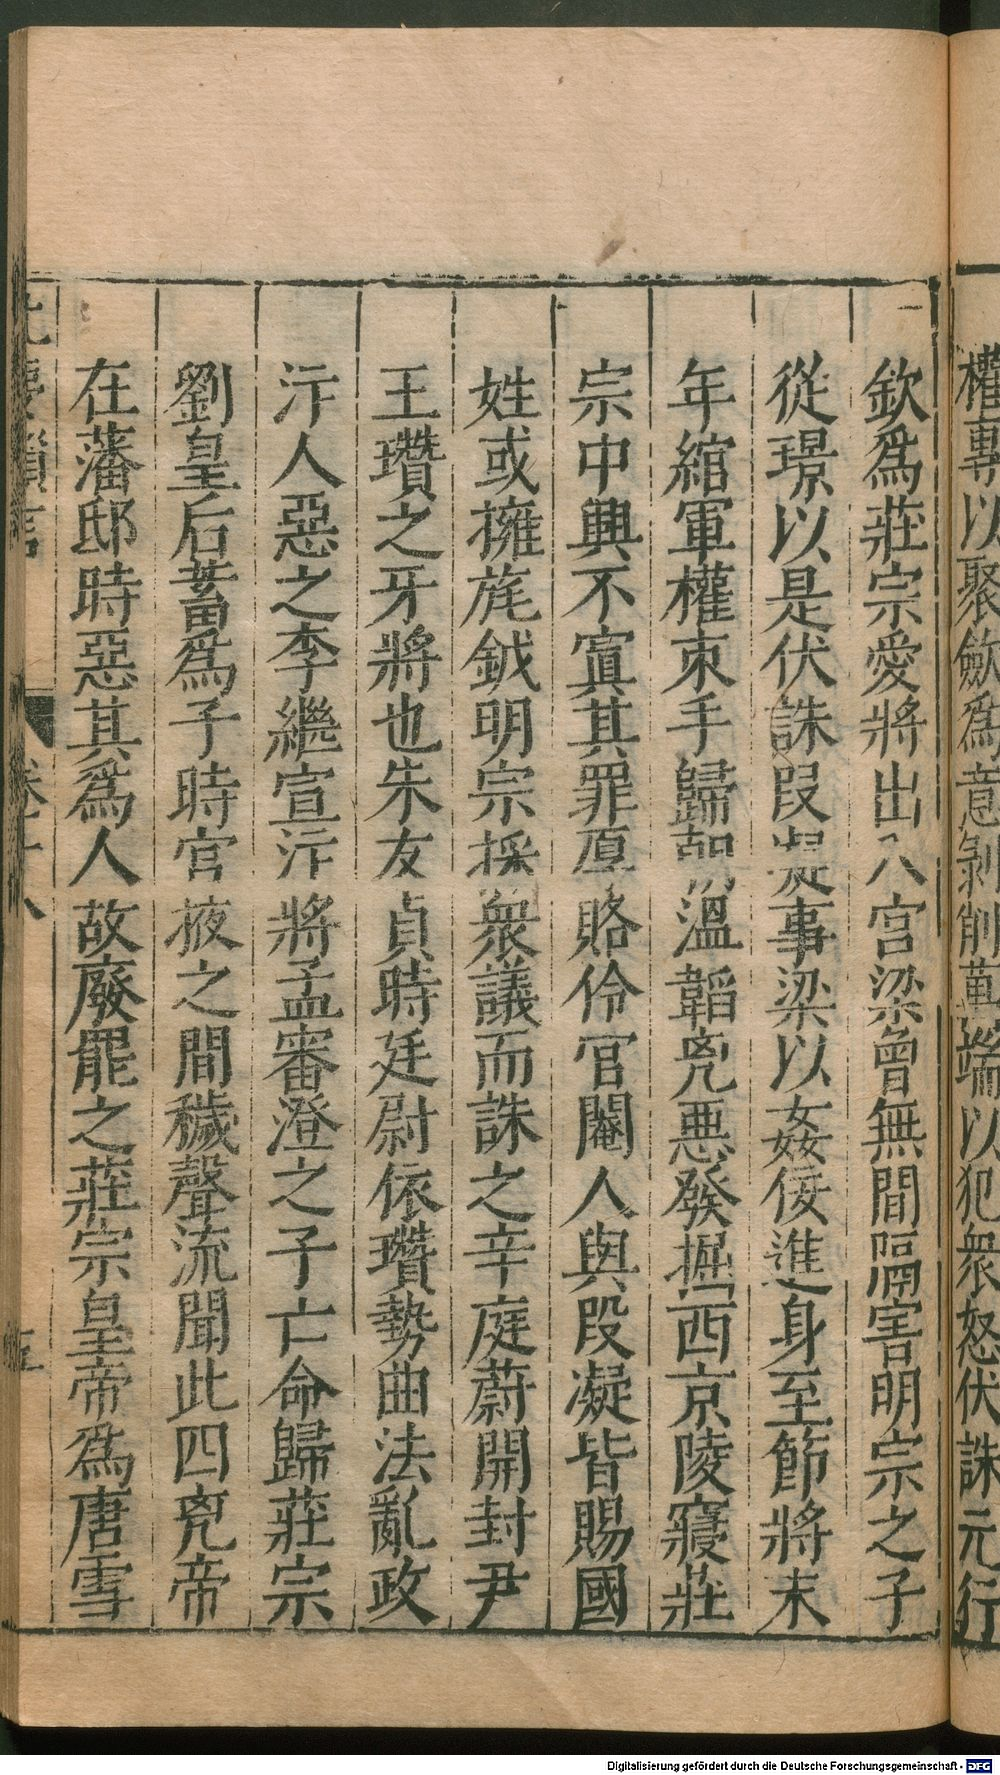 權專以聚歛爲意剝削萬端以犯衆怒伏誅元行
欽爲莊宗愛將出入宮梁曾無間隔害明宗之子
從璟以是伏誅段凝事梁以姦佞進身至節將末
年綰軍權束手歸朝溫韜兇惡發掘西京陵寢莊
宗中興不寘其罪厚賂伶官閹人與段凝皆賜國
姓或擁旄鉞明宗採衆議而誅之辛庭蔚開封尹
王瓚之牙將也朱友貞時廷尉依瓚勢曲法亂政
汴人惡之李繼宣汴將孟審澄之子亡命歸莊宗
劉皇后蓄爲子時宮掖之間穢聲流聞此四兇帝
在藩邸時惡其爲人故廢罷之莊宗皇帝爲唐雪
卷十八
Digitalisierung gefördert durch die Deutsche Forschungsgemeinschaft - DFG